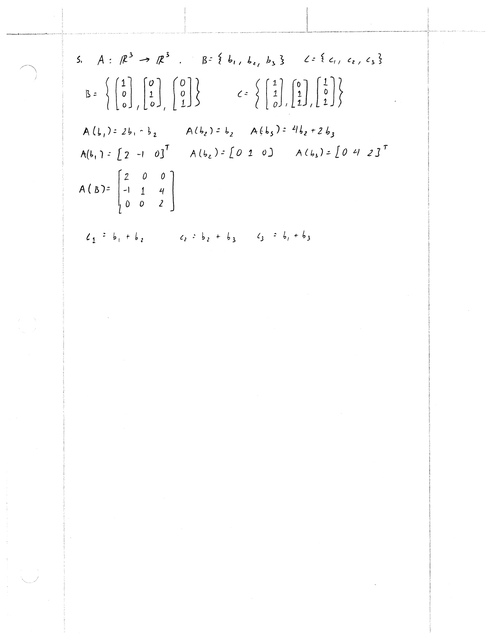 5. A: ℝ³ → ℝ³. B = { b₁, b₂, b₃ } C = { c₁, c₂, c₃ }
B = { [1 0 0], [0 1 0], [0 0 1] } C = { [1 1 0], [0 1 1], [1 0 1] }
A(b₁) = 2b₁ - b₂ A(b₂) = b₂ A(b₃) = 4b₂ + 2b₃
A(b₁) = [2 -1 0]ᵀ A(b₂) = [0 1 0] A(b₃) = [0 4 2]ᵀ
A(B) = [2 0 0
-1 1 4
0 0 2]
c₁ = b₁ + b₂ c₂ = b₂ + b₃ c₃ = b₁ + b₃